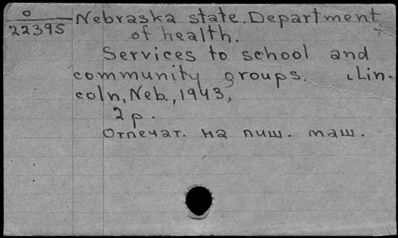 O
22395
Nebraska state. Department
of health.
Services to school and
community groups. Lin-
coln, Neb., 1943,
2 p.
Отпечат. на пиш. маш.